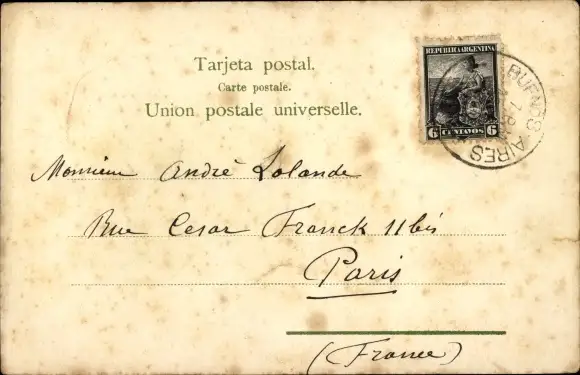 Tarjeta postal.
Carte postale.
Union postale universelle.
REPUBLICA ARGENTINA
6 CENTAVOS 6
BUENOS AIRES
Monsieur André Lalande
Rue Cesar Franck 11bis
Paris
(France)